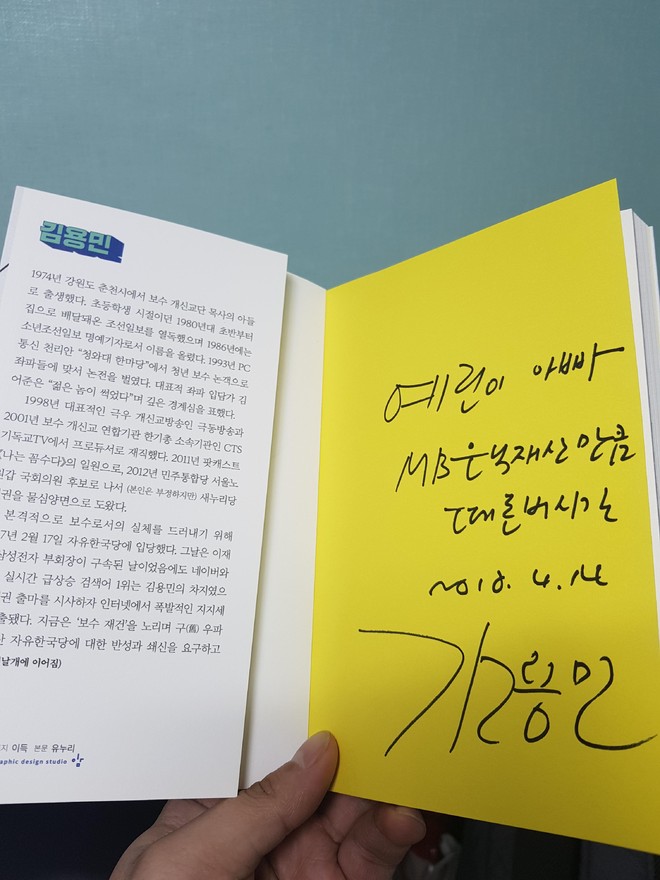 김용민
1974년 강원도 춘천시에서 보수 개신교단 목사의 아들
로 출생했다. 초등학생 시절이던 1980년대 초반부터
집으로 배달돼온 조선일보를 열독했으며 1986년에는
소년조선일보 명예기자로서 이름을 올렸다. 1993년 PC
통신 천리안 “청와대 한마당”에서 청년 보수 논객으로
좌파들에 맞서 논전을 벌였다. 대표적 좌파 입담가 김
어준은 “젊은 놈이 썩었다”며 깊은 경계심을 표했다.
1998년 대표적인 극우 개신교방송인 극동방송과
2001년 보수 개신교 연합기관 한기총 소속기관인 CTS
기독교TV에서 프로듀서로 재직했다. 2011년 팟캐스트
《나는 꼼수다》의 일원으로, 2012년 민주통합당 서울노
원갑 국회의원 후보로 나서 (본인은 부정하지만) 새누리당
권을 물심양면으로 도왔다.
본격적으로 보수로서의 실체를 드러내기 위해
7년 2월 17일 자유한국당에 입당했다. 그날은 이재
삼성전자 부회장이 구속된 날이었음에도 네이버와
실시간 급상승 검색어 1위는 김용민의 차지였으
권 출마를 시사하자 인터넷에서 폭발적인 지지세
출됐다. 지금은 ‘보수 재건’을 노리며 구(舊) 우파
자유한국당에 대한 반성과 쇄신을 요구하고
날개에 이어짐)
지 이득 본문 유누리
aphic design studio
예린이 아빠
MB은닉재산만큼
떼돈버시길
2018. 4. 14
김용민